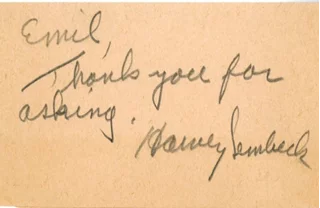 Emil,
Thank you for
asking.
Harvey Lembeck